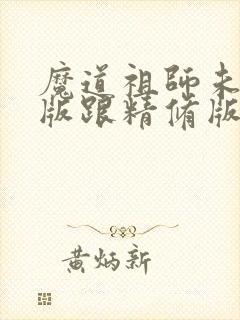 魔道祖师未
版跟精修版
黄炳新